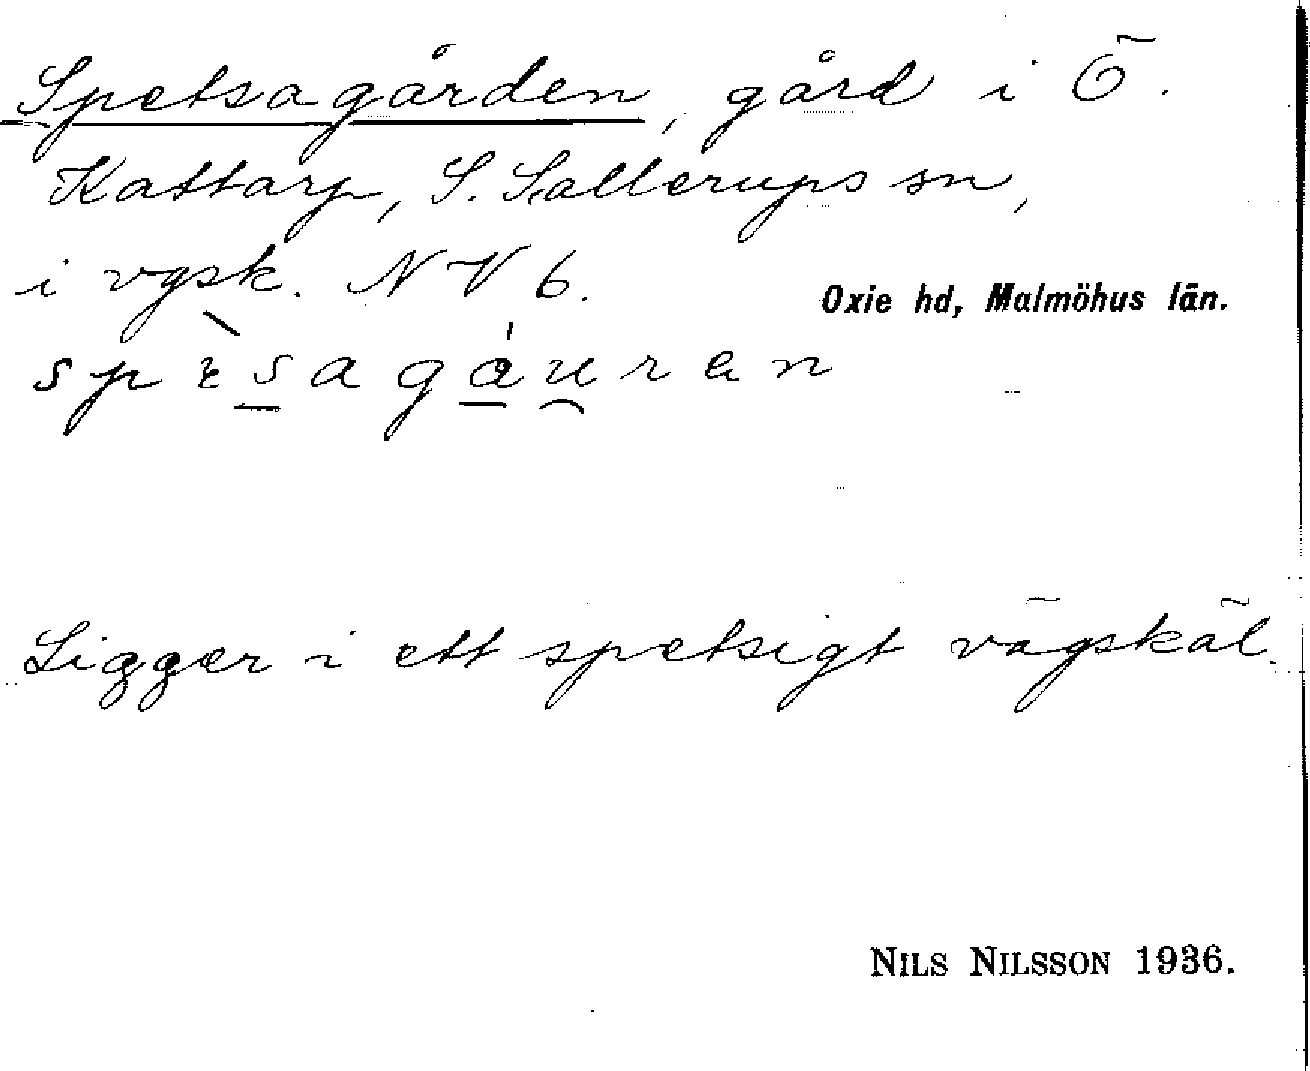 Spetsagården, gård i Ö.
Kattarp, S. Sallerups sn,
i vgsk. NV 6.
Oxie hd, Malmöhus län.
Ligger i ett spetsigt vägskäl.
NILS NILSSON 1936.